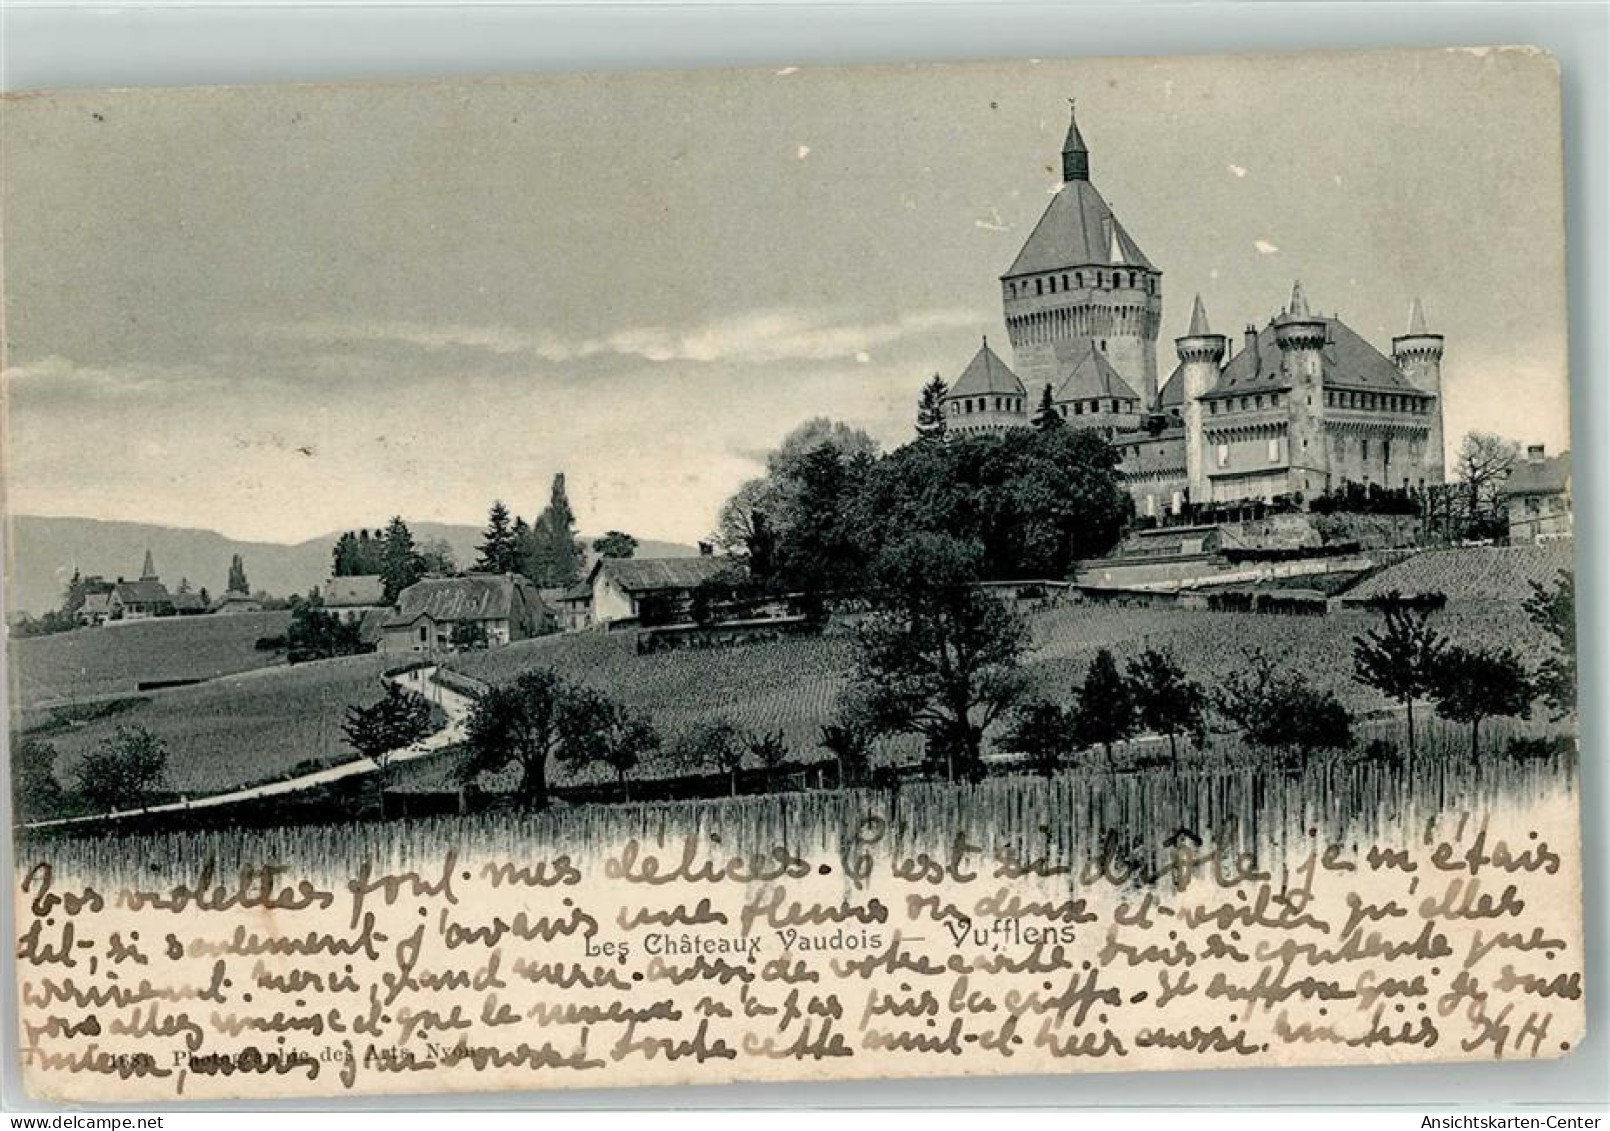 Vos violettes font mes délices. C'est si drôle je m'étais
dit, si seulement j'avais une fleur ou deux et voilà qu'elles
Les Châteaux Vaudois — Vufflens
arrivent. Merci, grand merci aussi de votre carte. suis si contente que
vous allez mieux et que le neveux n'a pas pris la griffe. Je suppose que je suis
mieux, mais j'ai toussé toute cette nuit et hier aussi.
1689 Photographie des Arts, Nyon
Ansichtskarten-Center